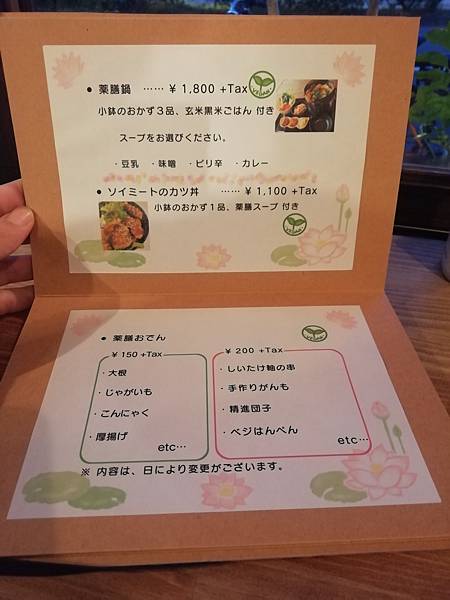 ● 薬膳鍋 …… ¥ 1,800 +Tax
小鉢のおかず３品、玄米黒米ごはん 付き
スープをお選びください。
・豆乳 ・味噌 ・ピリ辛 ・カレー
● ソイミートのカツ丼 …… ¥ 1,100 +Tax
小鉢のおかず１品、薬膳スープ 付き
● 薬膳おでん
¥ 150 +Tax
・大根
・じゃがいも
・こんにゃく
・厚揚げ
etc…
¥ 200 +Tax
・しいたけ軸の串
・手作りがんも
・精進団子
・ベジはんぺん
etc…
※ 内容は、日により変更がございます。